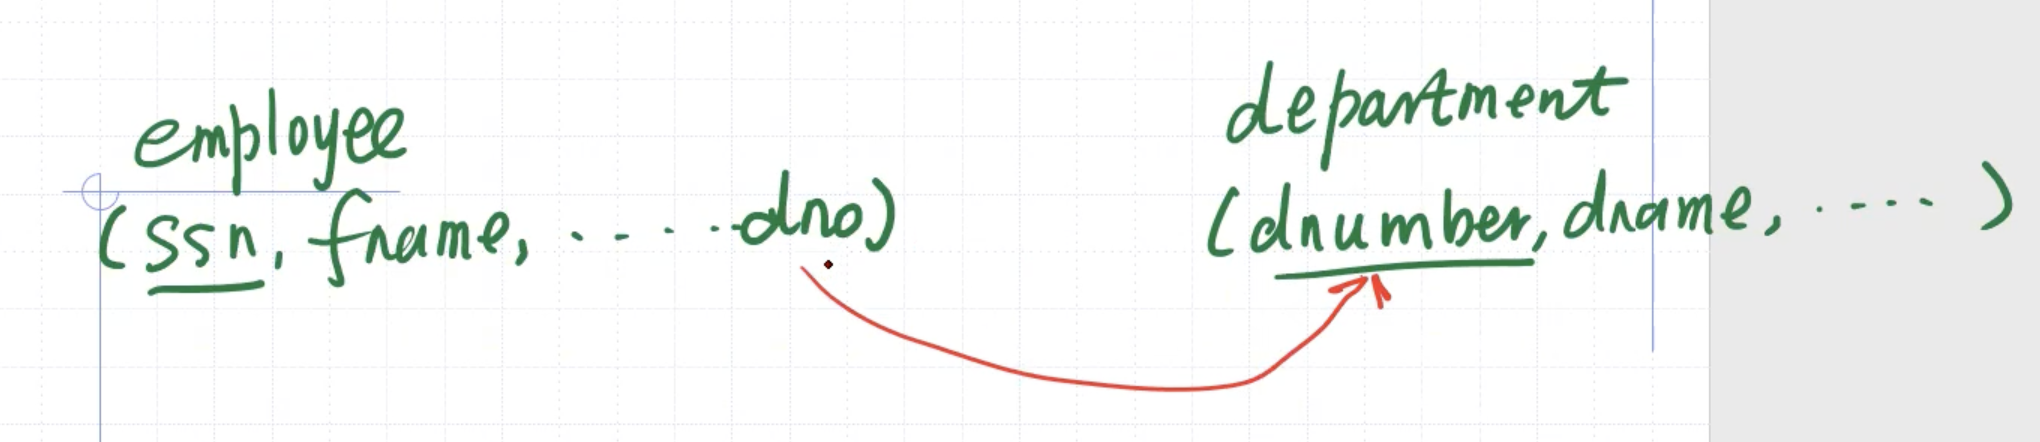 employee
(ssn, fname, ..... dno)
department
(dnumber, dname, ..... )